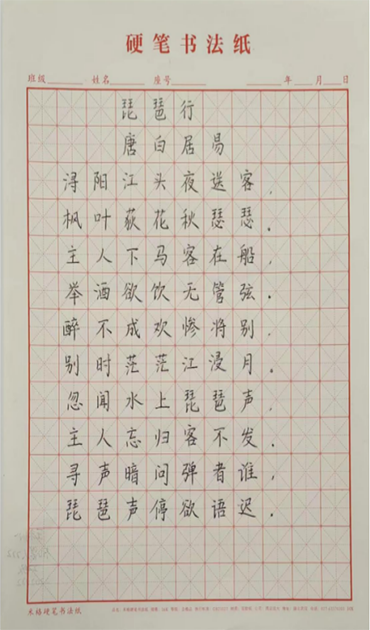 硬笔书法纸
班级 姓名 座号 年 月 日
琵琶行
唐 白居易
浔阳江头夜送客，
枫叶荻花秋瑟瑟。
主人下马客在船，
举酒欲饮无管弦。
醉不成欢惨将别，
别时茫茫江浸月。
忽闻水上琵琶声，
主人忘归客不发。
寻声暗问弹者谁，
琵琶声停欲语迟。
米格硬笔书法纸